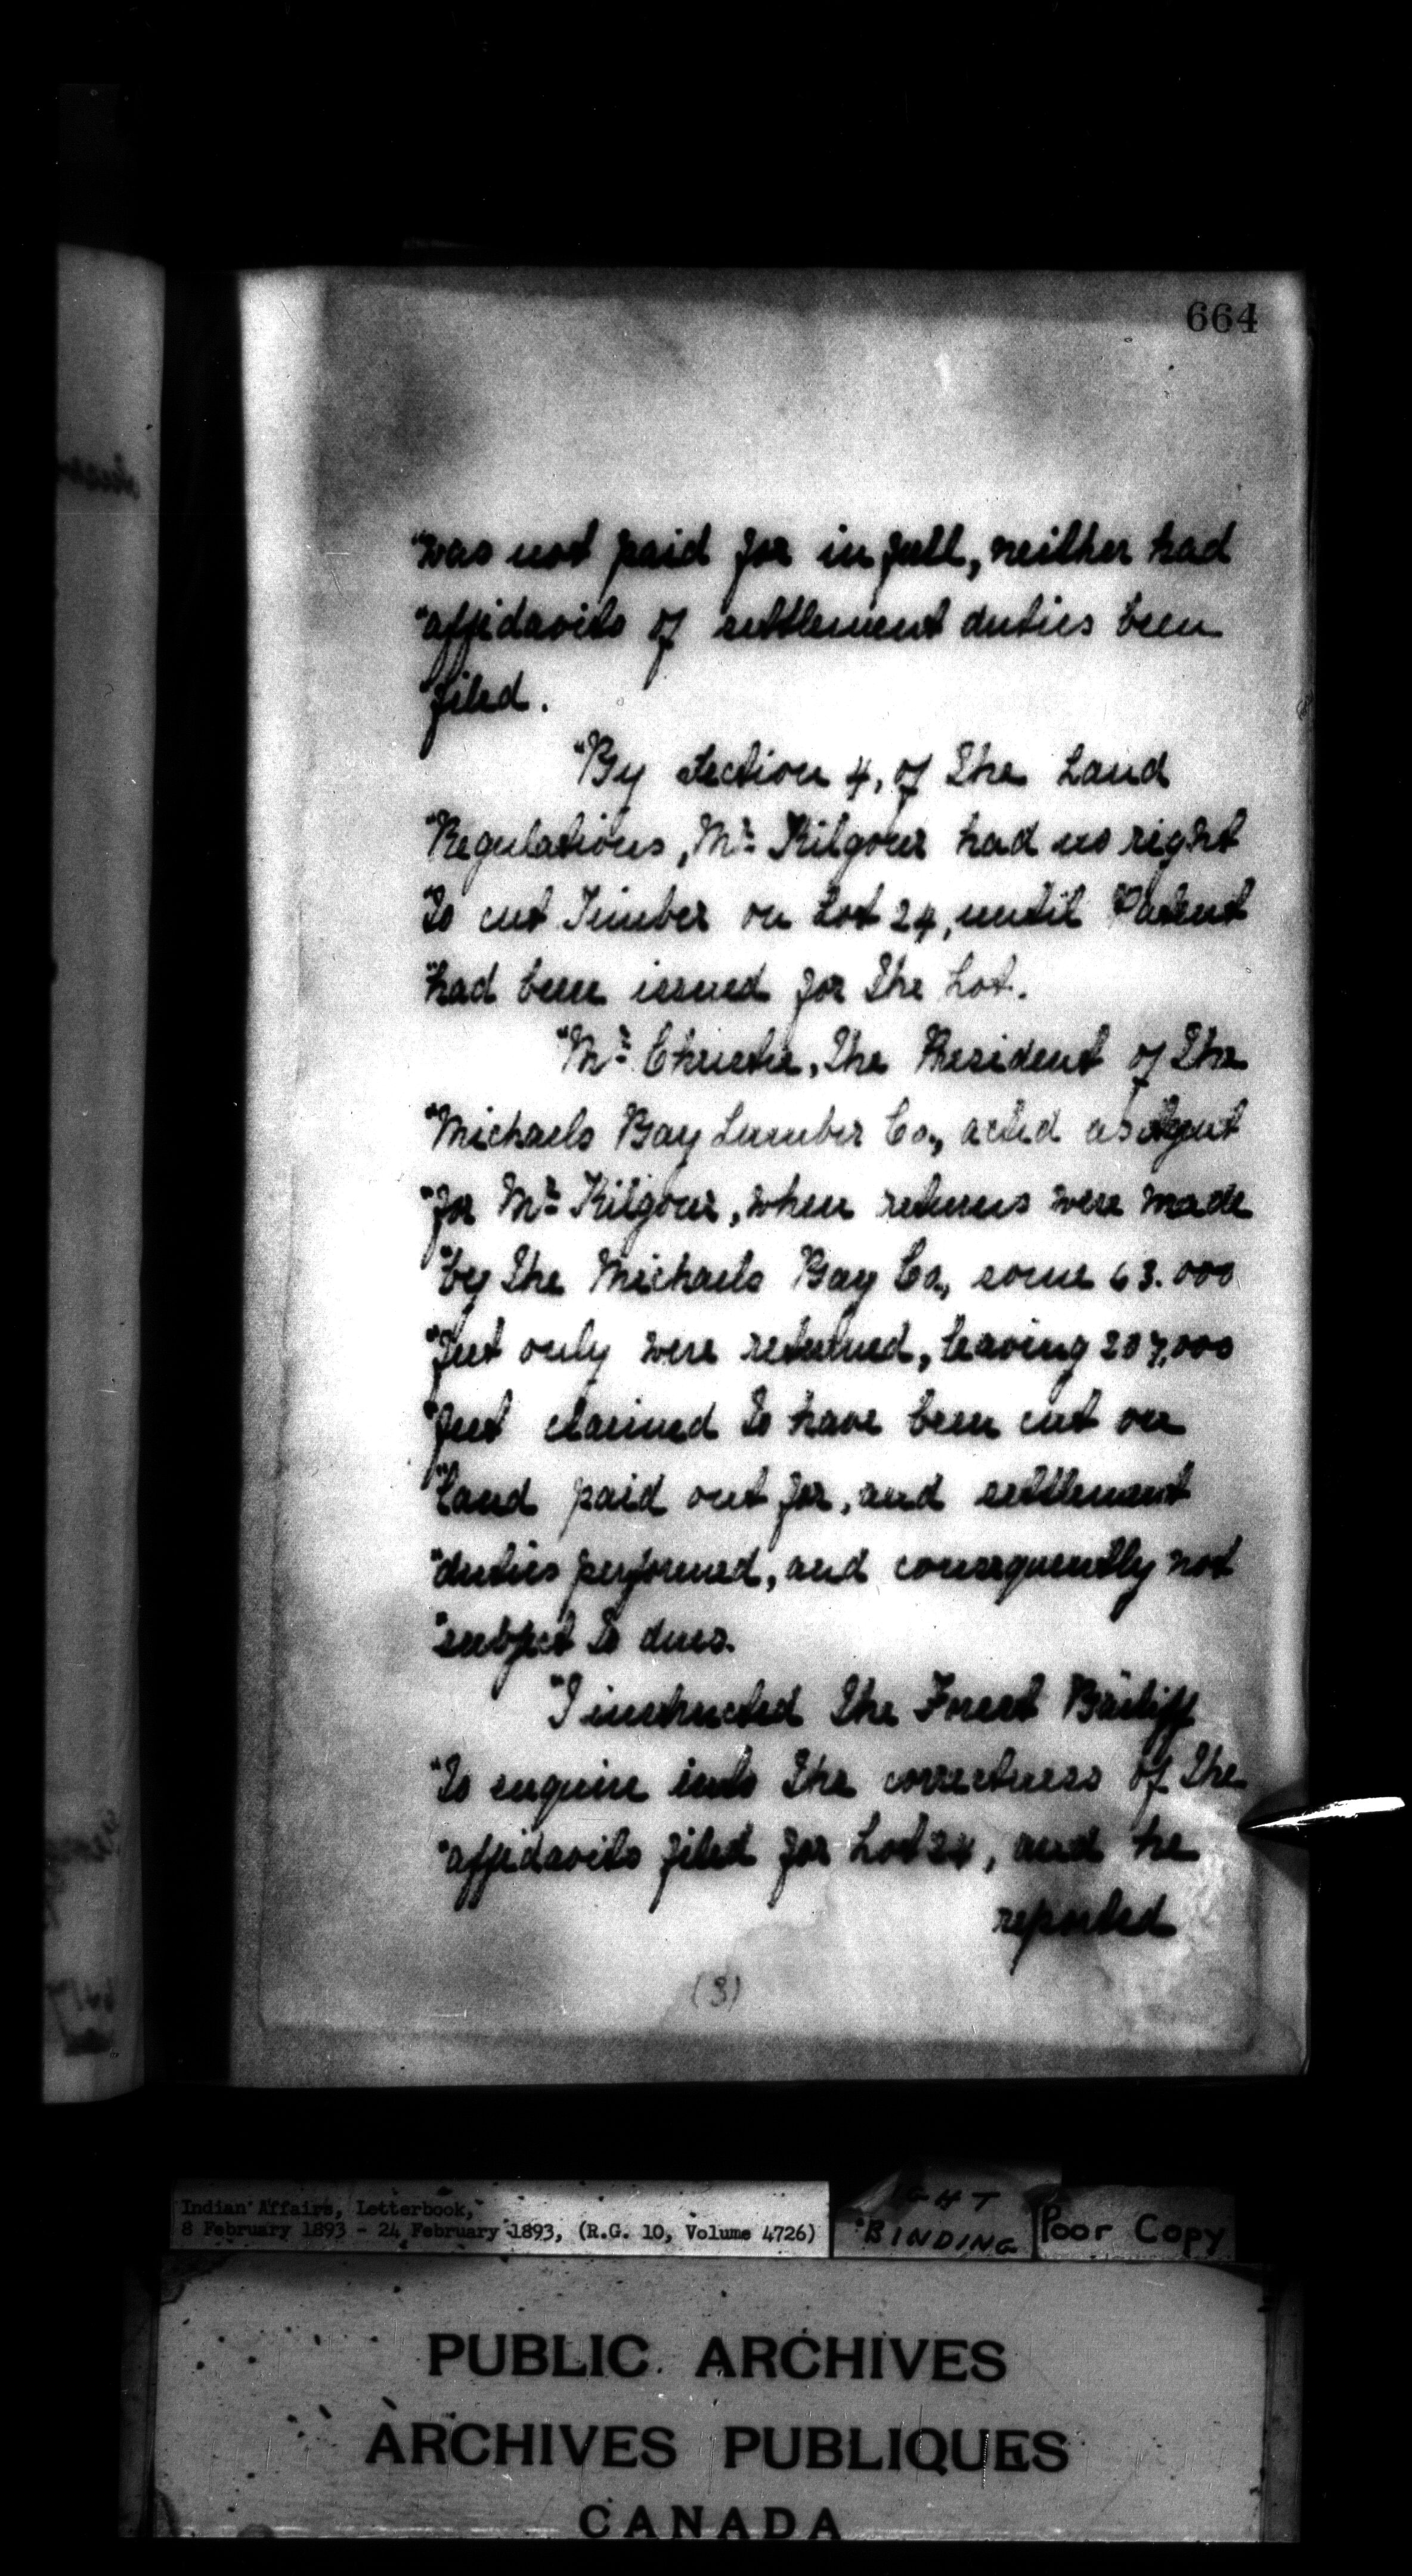 664
"was not paid for in full, neither had
"affidavits of settlement duties been
"filed.
"By Section 4, of the Land
"Regulations, Mr. Kilgour had no right
"to cut Timber on Lot 24, until Patent
"had been issued for the Lot.
"Mr. Christie, the President of the
"Michaels Bay Lumber Co., acted as Agent
"for Mr. Kilgour, when returns were made
"by the Michaels Bay Co., some 63.000
"feet only were returned, leaving 207,000
"feet claimed to have been cut on
"land paid out for, and settlement
"duties performed, and consequently not
"subject to dues.
"I instructed the Forest Bailiff
"to enquire into the correctness of the
"affidavits filed for Lot 24, and he
reported
(3)
Indian Affairs, Letterbook,
8 February 1893 - 24 February 1893, (R.G. 10, Volume 4726)
BINDING
Poor Copy
PUBLIC ARCHIVES
ARCHIVES PUBLIQUES
CANADA